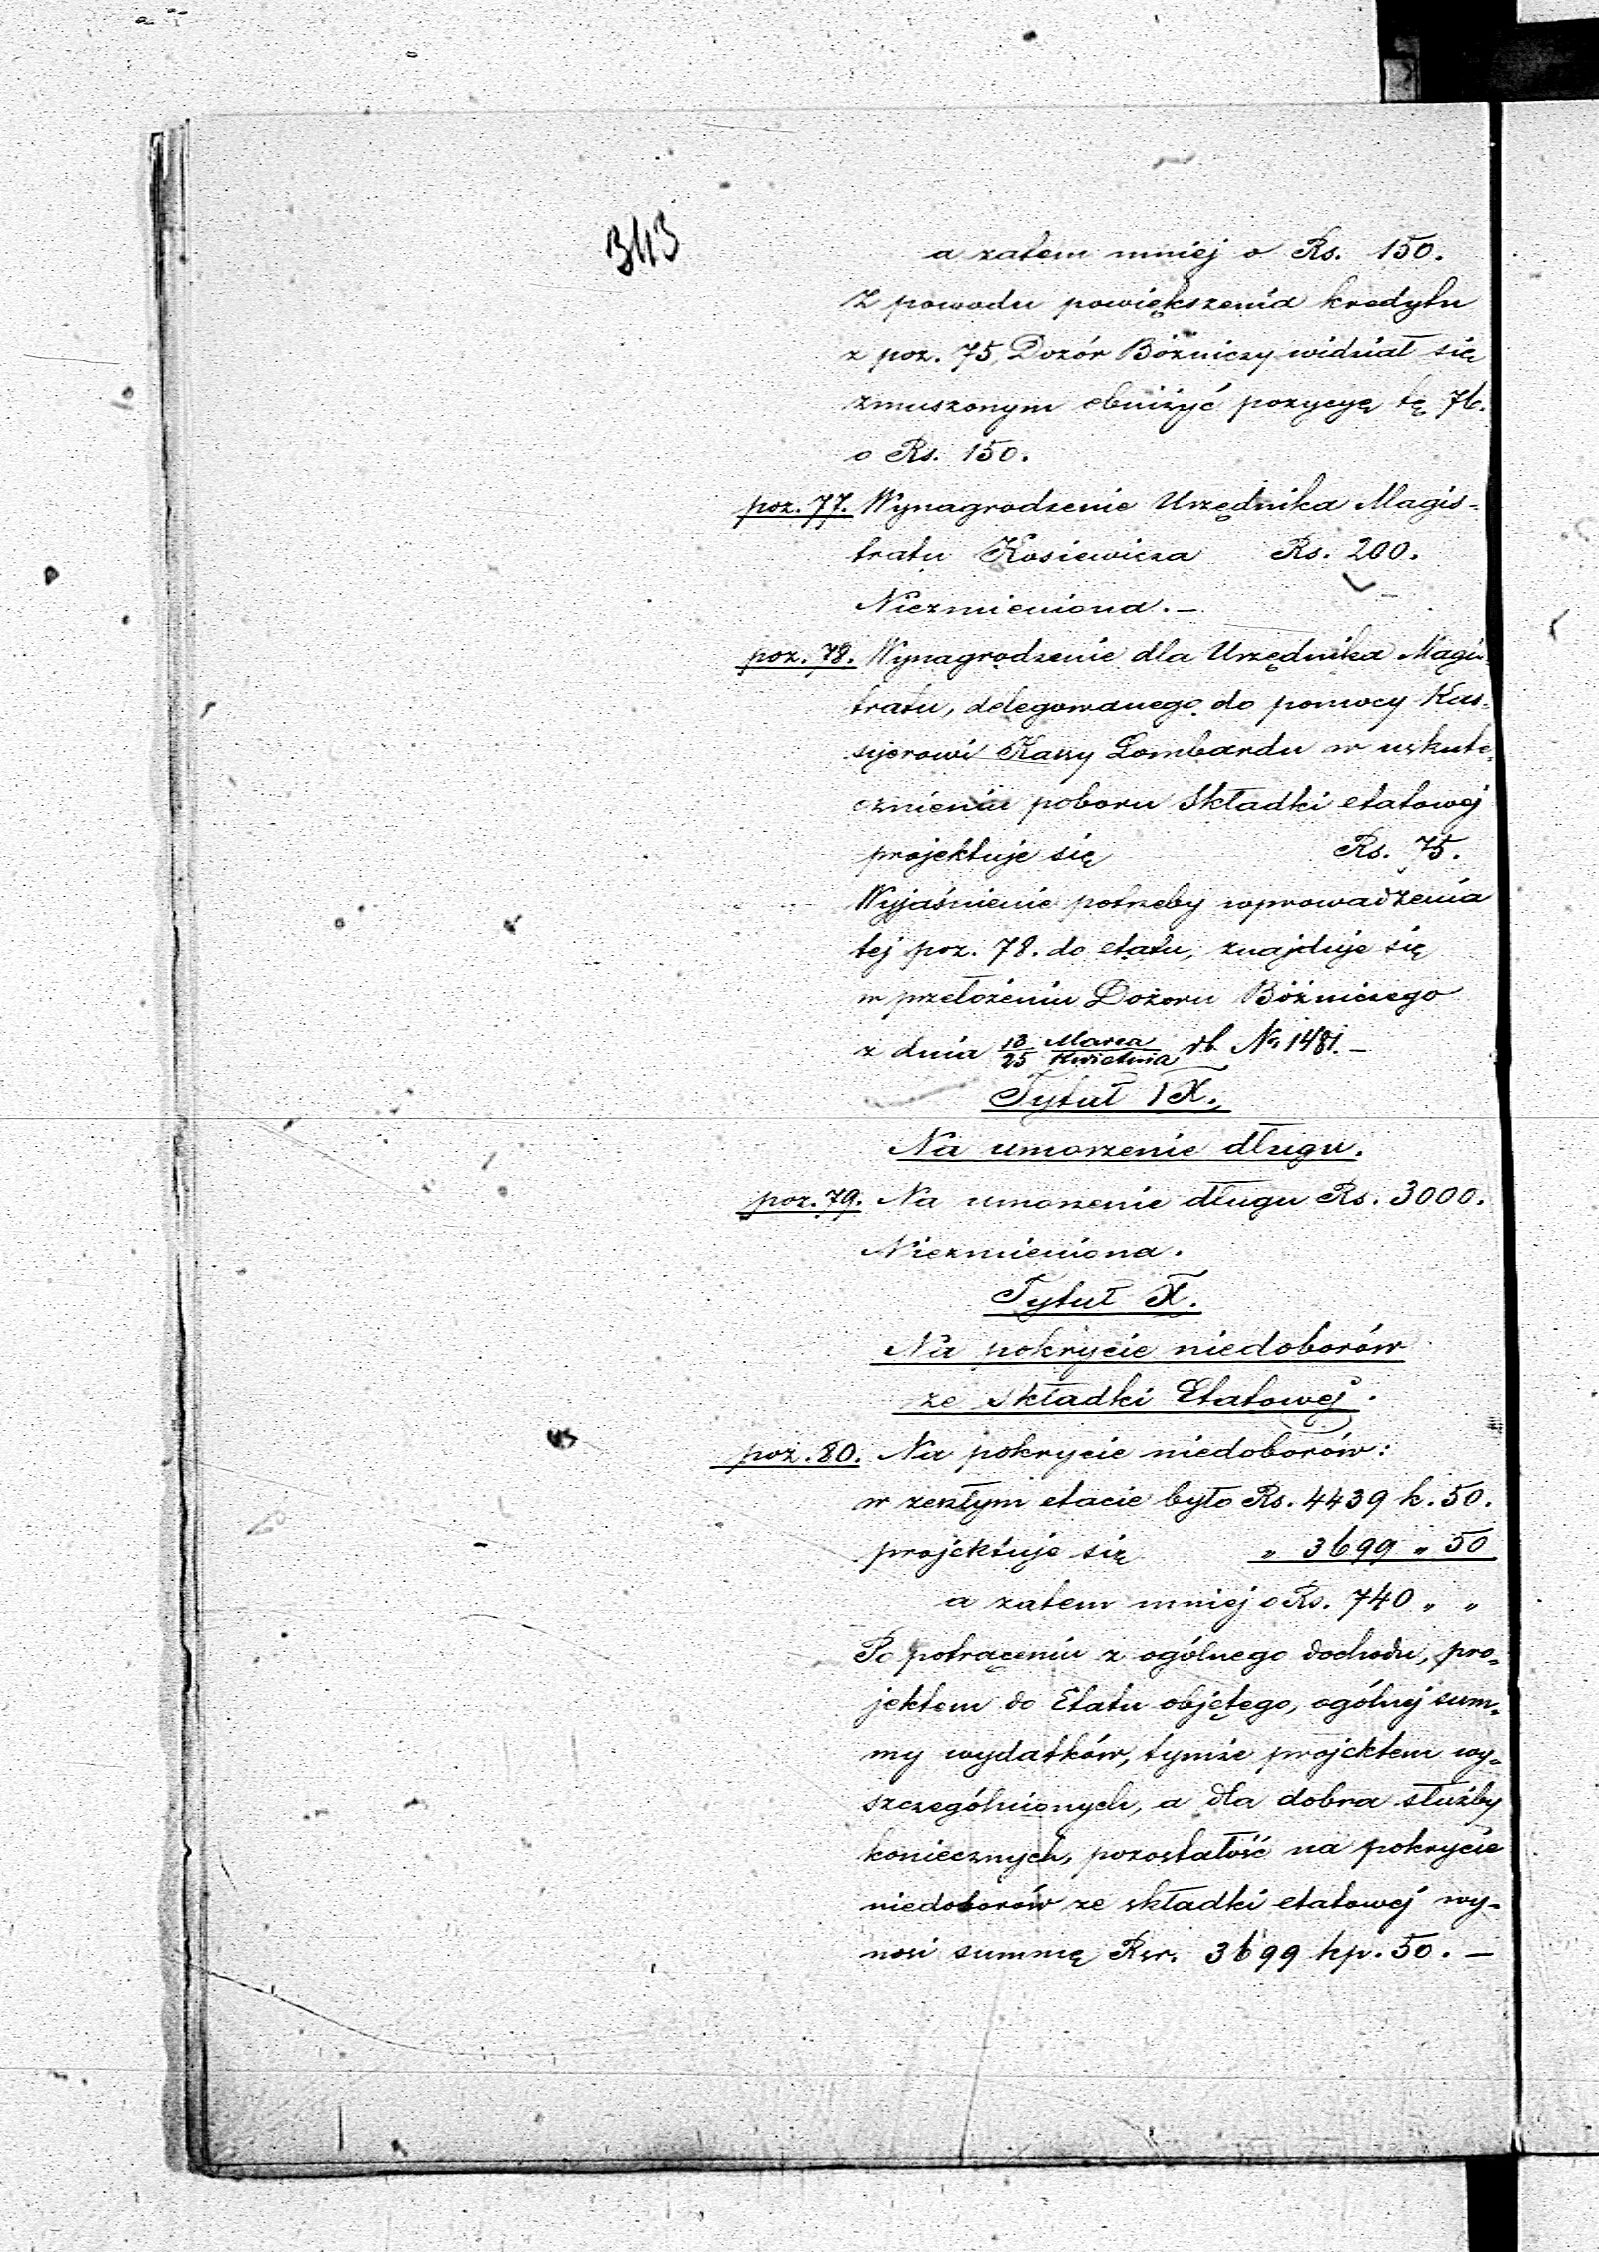 343
a zatem mniej o Rs. 150.
Z powodu powiększenia kredytu
z poz. 75, Dozór Bóżniczy widział się
zmuszonym obniżyć pozycyę tę 76.
o Rs. 150.
poz. 77. Wynagrodzenie Urzędnika Magis-
tratu Kosiewicza Rs. 200.
Niezmieniona. —
poz. 78. Wynagrodzenie dla Urzędnika Magis-
tratu, delegowanego do pomocy Kas-
syerowi Kassy Lombardu w uskute-
cznieniu poboru Składki etatowej
projektuje się Rs. 75.
Wyjaśnienie potrzeby wprowadzenia
tej poz. 78. do etatu, znajduje się
w przełożeniu Dozoru Bóżniczego
z dnia 13/25 Marca/Kwietnia rb. No 1481. —
Tytuł IX.
Na umorzenie długu.
poz. 79. Na umorzenie długu Rs. 3000.
Niezmieniona.
Tytuł X.
Na pokrycie niedoborów
ze Składki Etatowej.
poz. 80. Na pokrycie niedoborów:
w zeszłym etacie było Rs. 4439 k. 50.
projektuje się „ 3699 „ 50
a zatem mniej o Rs. 740 „ „
Po potrąceniu z ogólnego dochodu, pro-
jektem do Etatu objętego, ogólnej sum-
my wydatków, tymże projektem wy-
szczególnionych, a dla dobra służby
koniecznych, pozostałość na pokrycie
niedoborów ze składki etatowej wy-
nosi summę Rsr. 3699 kp. 50. —